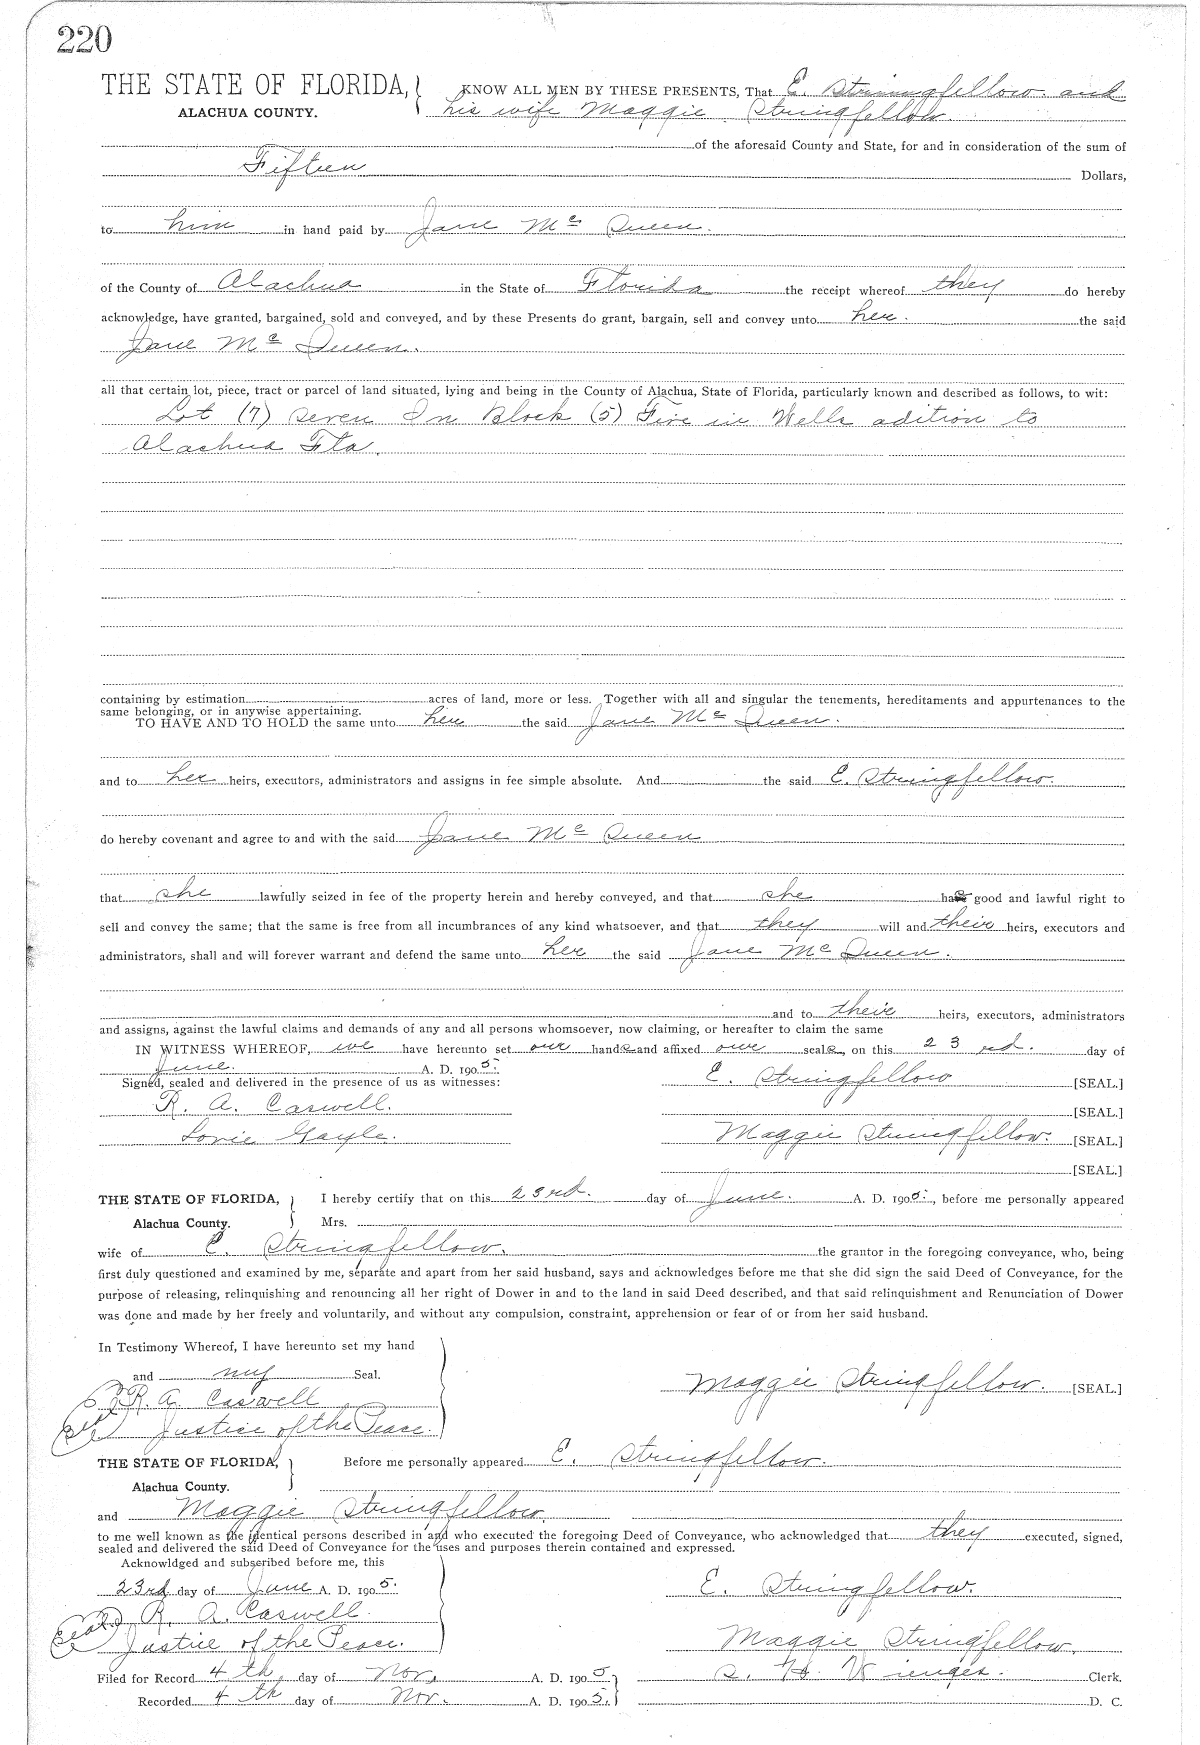 220
THE STATE OF FLORIDA, KNOW ALL MEN BY THESE PRESENTS, That E. Stringfellow and
ALACHUA COUNTY. his wife Maggie Stringfellow
of the aforesaid County and State, for and in consideration of the sum of
Fifteen Dollars,
to him in hand paid by Jane Mc Queen.
of the County of Alachua in the State of Florida the receipt whereof they do hereby
acknowledge, have granted, bargained, sold and conveyed, and by these Presents do grant, bargain, sell and convey unto her. the said
Jane Mc Queen.
all that certain lot, piece, tract or parcel of land situated, lying and being in the County of Alachua, State of Florida, particularly known and described as follows, to wit:
Lot (7) seven In Block (5) Five in Wells adition to
Alachua Fla.
containing by estimation acres of land, more or less. Together with all and singular the tenements, hereditaments and appurtenances to the
same belonging, or in anywise appertaining.
TO HAVE AND TO HOLD the same unto her the said Jane Mc Queen.
and to her heirs, executors, administrators and assigns in fee simple absolute. And the said E. Stringfellow.
do hereby covenant and agree to and with the said Jane Mc Queen
that she lawfully seized in fee of the property herein and hereby conveyed, and that she has good and lawful right to
sell and convey the same; that the same is free from all incumbrances of any kind whatsoever, and that they will and their heirs, executors and
administrators, shall and will forever warrant and defend the same unto her the said Jane Mc Queen.
and to their heirs, executors, administrators
and assigns, against the lawful claims and demands of any and all persons whomsoever, now claiming, or hereafter to claim the same
IN WITNESS WHEREOF, we have hereunto set our hands and affixed our seals, on this 23rd. day of
June. A. D. 1905.
Signed, sealed and delivered in the presence of us as witnesses: E. Stringfellow [SEAL.]
R. A. Caswell. [SEAL.]
Lovie Gayle. Maggie Stringfellow. [SEAL.]
[SEAL.]
THE STATE OF FLORIDA, I hereby certify that on this 23rd. day of June. A. D. 1905, before me personally appeared
Alachua County. Mrs.
wife of E. Stringfellow. the grantor in the foregoing conveyance, who, being
first duly questioned and examined by me, separate and apart from her said husband, says and acknowledges before me that she did sign the said Deed of Conveyance, for the
purpose of releasing, relinquishing and renouncing all her right of Dower in and to the land in said Deed described, and that said relinquishment and Renunciation of Dower
was done and made by her freely and voluntarily, and without any compulsion, constraint, apprehension or fear of or from her said husband.
In Testimony Whereof, I have hereunto set my hand
and my Seal. Maggie Stringfellow. [SEAL.]
R. A. Caswell
Seal Justice of the Peace.
THE STATE OF FLORIDA, Before me personally appeared E. Stringfellow.
Alachua County.
and Maggie Stringfellow.
to me well known as the identical persons described in and who executed the foregoing Deed of Conveyance, who acknowledged that they executed, signed,
sealed and delivered the said Deed of Conveyance for the uses and purposes therein contained and expressed.
Acknowldged and subscribed before me, this
23rd day of June A. D. 1905. E. Stringfellow.
Seal R. A. Caswell.
Justice of the Peace. Maggie Stringfellow.
Filed for Record 4th day of Nov. A. D. 1905 S. H. Wienges. Clerk.
Recorded 4th day of Nov. A. D. 1905. D. C.